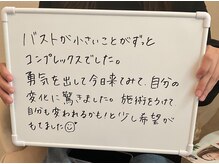 バストが小さいことがずっと
コンプレックスでした。
勇気を出して今日来てみて、自分の
変化に驚きました。施術をうけて
自分も変われるかも!と少し希望が
もてました☺